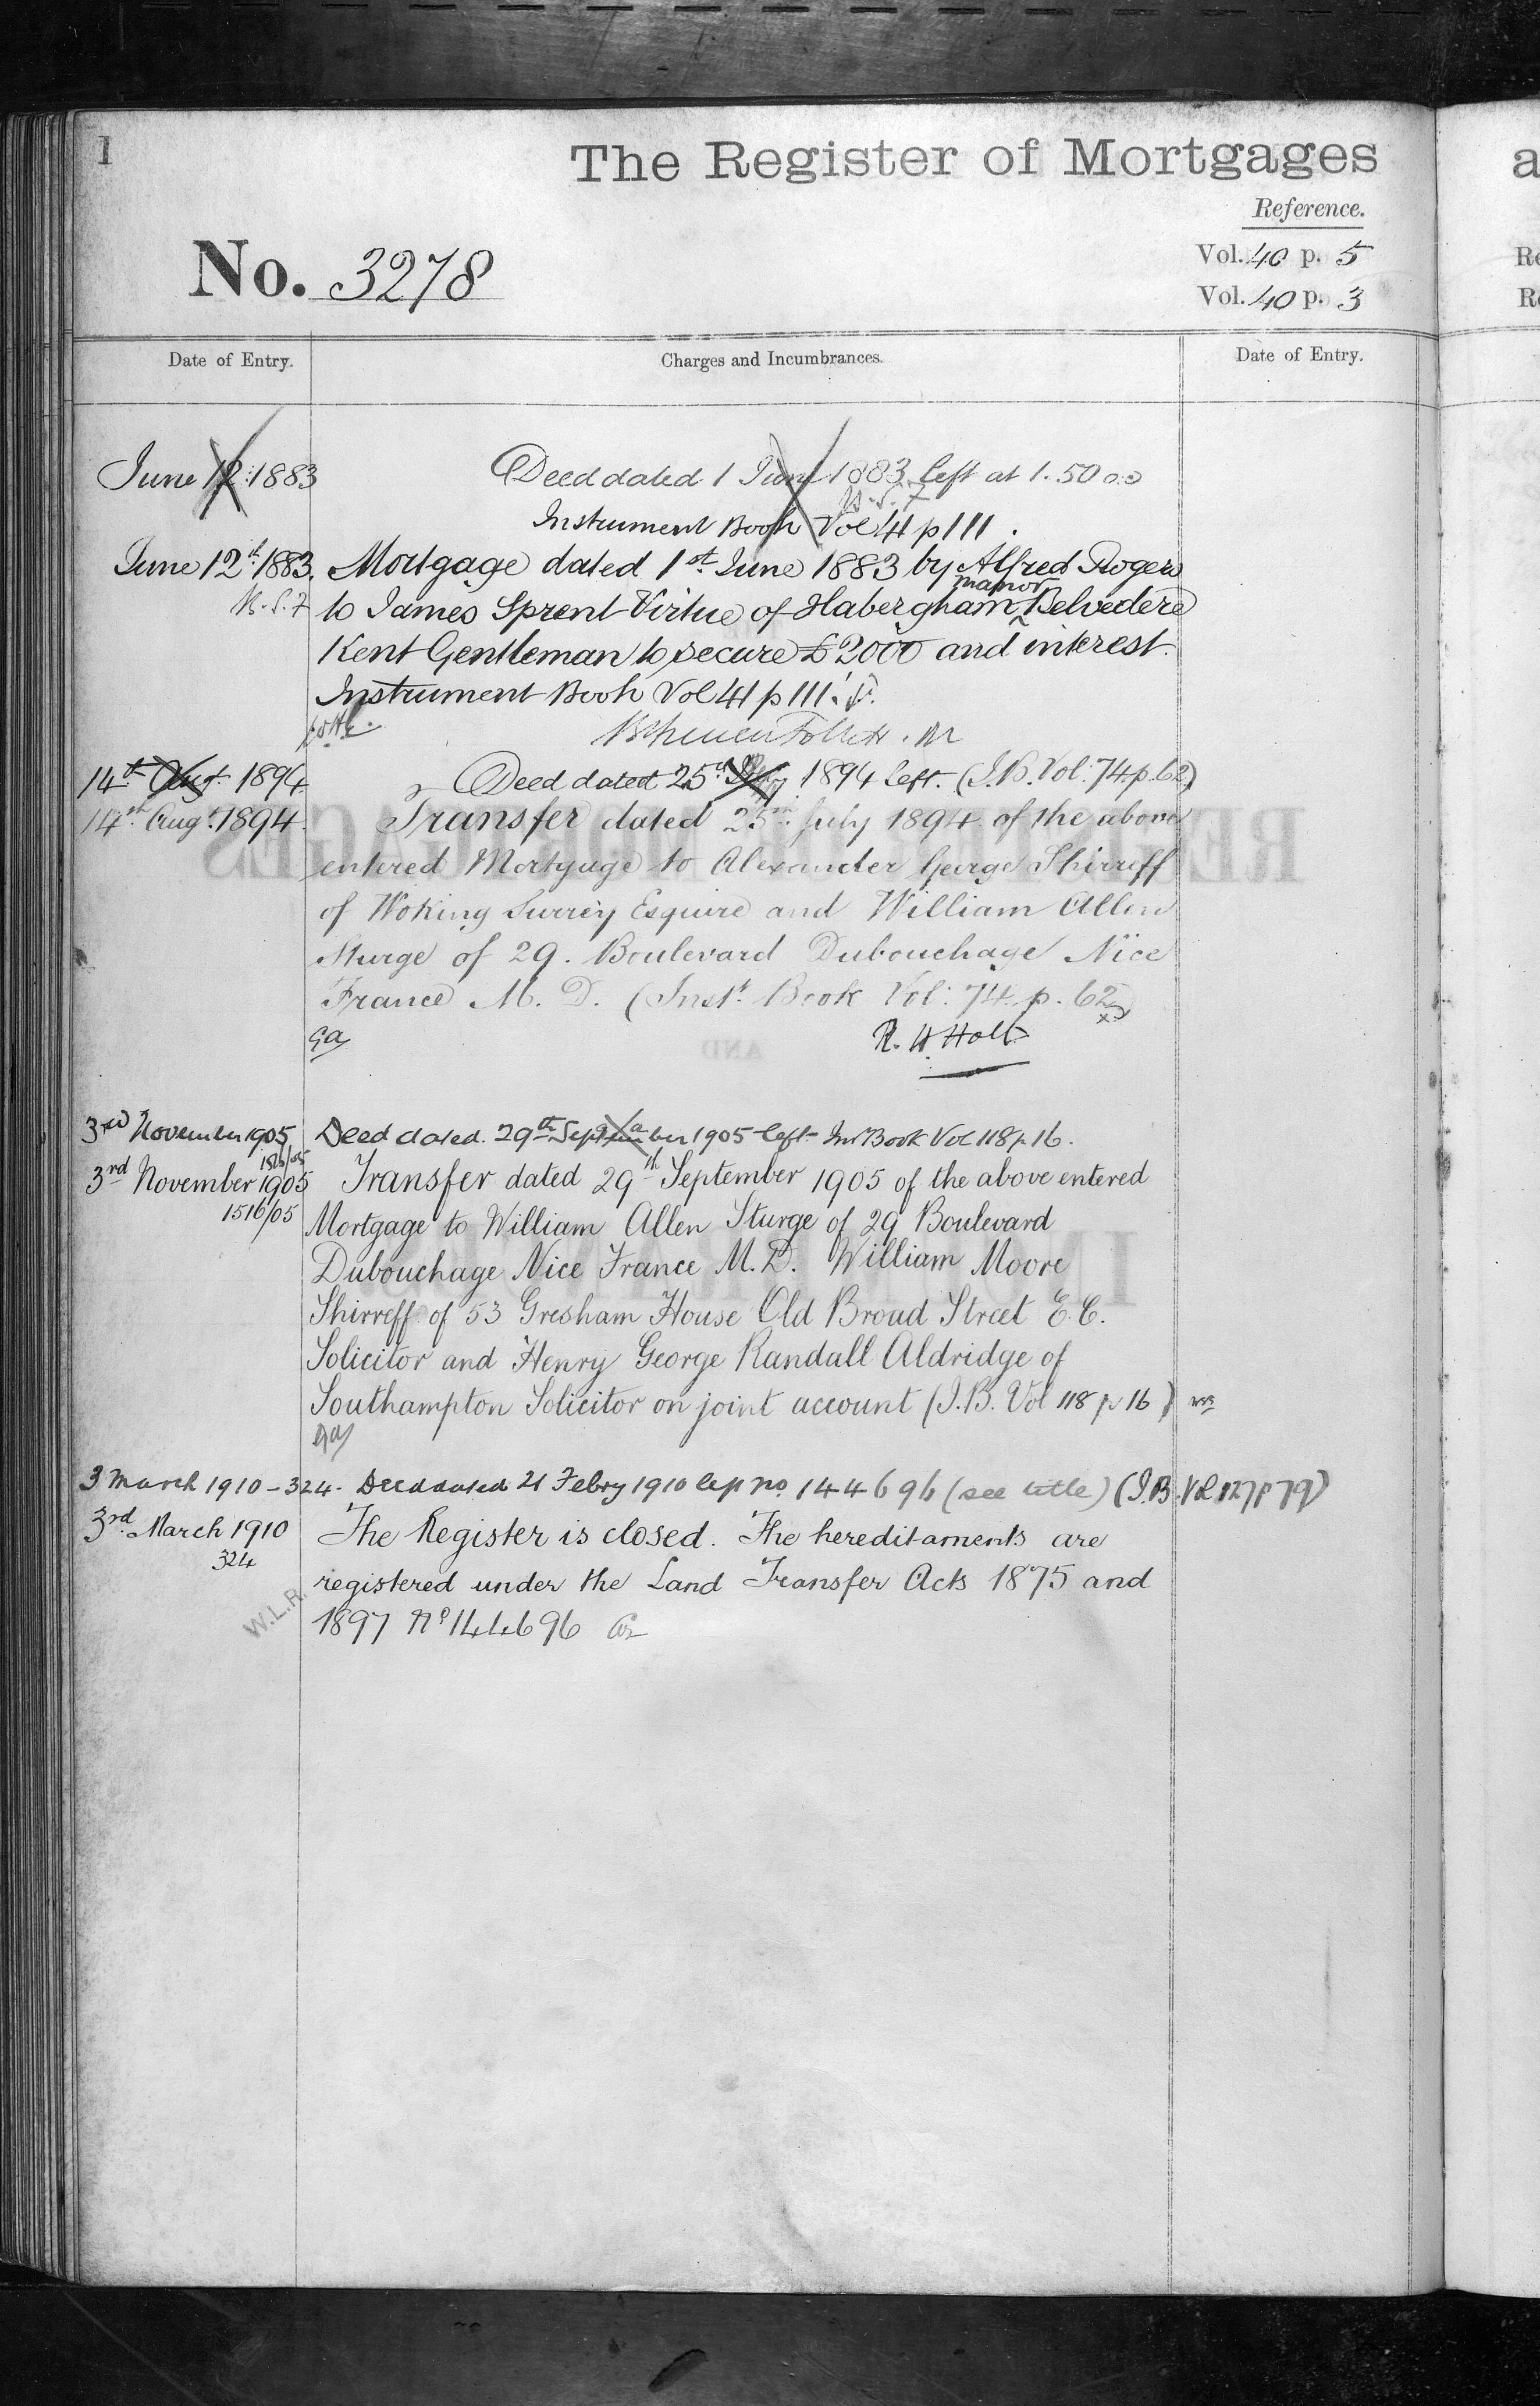 1
The Register of Mortgages
Reference.
No. 3278
Vol. 40 p. 5
Vol. 40 p. 3
Date of Entry.
Charges and Incumbrances.
Date of Entry.
June 12. 1883
Deed dated 1 June 1883 left at 1.50
Instrument Book Vol 41 p 111.
June 12th 1883. Mortgage dated 1st June 1883 by Alfred Rogers
manor
to James Sprent Virtue of Habergham Belvedere
Kent Gentleman to secure £2000 and interest.
Instrument Book Vol 41 p 111.
14th Augt 1894 Deed dated 25th July 1894 left. (I.B. Vol: 74 p. 62)
14th Augt 1894. Transfer dated 25th July 1894 of the above
entered Mortgage to Alexander George Shirreff
of Woking Surrey Esquire and William Allen
Sturge of 29. Boulevard Dubouchage Nice
France M. D. (Inst. Book Vol: 74 p. 62)
ga
R. H. Holt
3rd November 1905 Deed dated 29th September 1905 left Ins Book Vol 118 p 16.
1516/05
3rd November 1905 Transfer dated 29th September 1905 of the above entered
1516/05
Mortgage to William Allen Sturge of 29 Boulevard
Dubouchage Nice France M.D. William Moore
Shirreff of 53 Gresham House Old Broad Street E.C.
Solicitor and Henry George Randall Aldridge of
Southampton Solicitor on joint account (I.B. Vol 118 p 16)
ga
3 March 1910 - 324. Deed dated 21 Febry 1910 left no 144696 (see title) (I.B. Vol 127 p 79)
3rd March 1910 The Register is closed. The hereditaments are
324
registered under the Land Transfer Acts 1875 and
W.L.R.
1897 No 144696